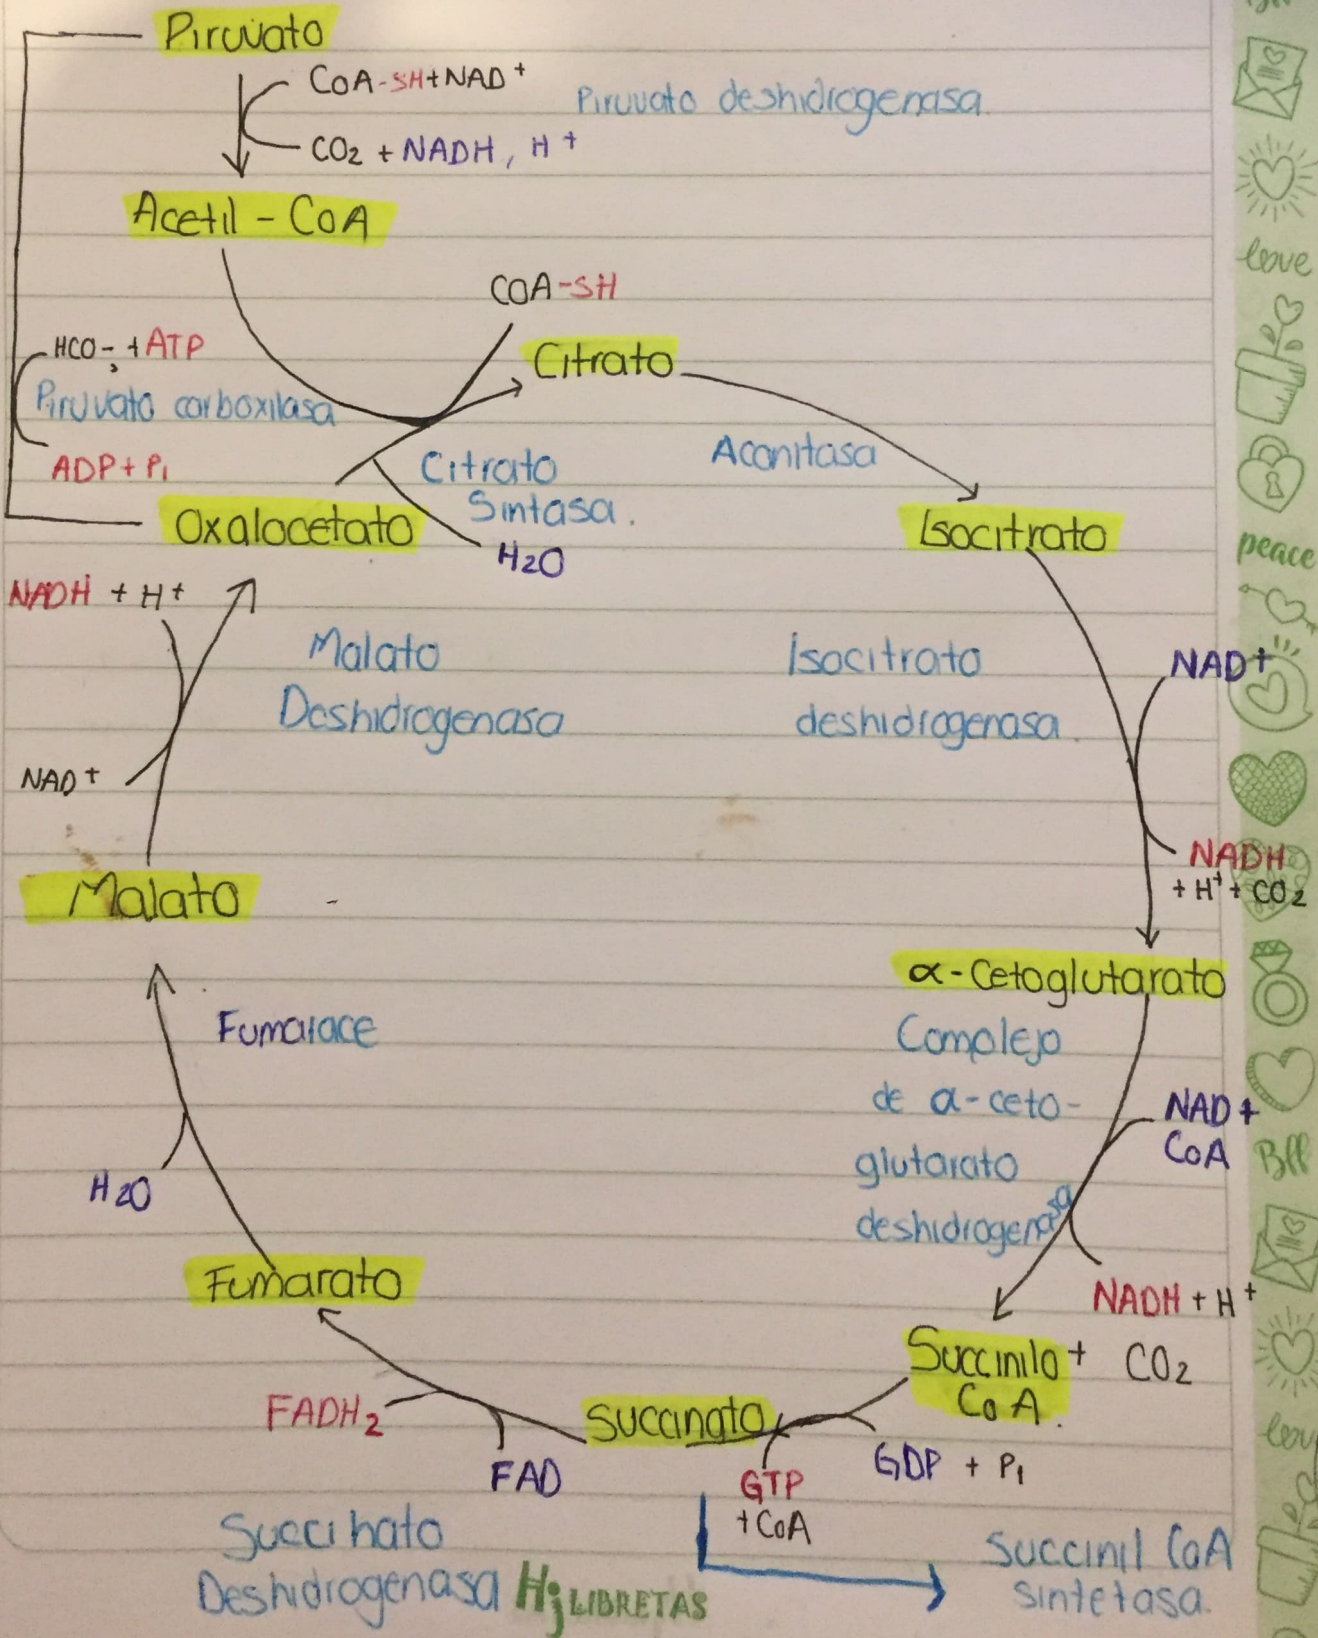 Piruvato
CoA-SH+NAD+
Piruvato deshidrogenasa
CO2 + NADH, H+
Acetil - CoA
COA-SH
HCO-3 + ATP
Citrato
Piruvato carboxilasa
ADP + Pi
Citrato
Sintasa.
Aconitasa
Oxalocetato
H2O
Isocitrato
NADH + H+
Malato
Deshidrogenasa
Isocitrato
deshidrogenasa.
NAD+
NAD+
NADH
+ H+ + CO2
Malato
α-Cetoglutarato
Fumarace
Complejo
de α-ceto-
glutarato
deshidrogenasa
NAD+
CoA
H2O
Fumarato
NADH + H+
Succinilo + CO2
CoA.
FADH2
Succinato
FAD
GTP
+CoA
GDP + Pi
Succinato
Deshidrogenasa
Succinil CoA
sintetasa.
Hj LIBRETAS
love
peace
Bff
love